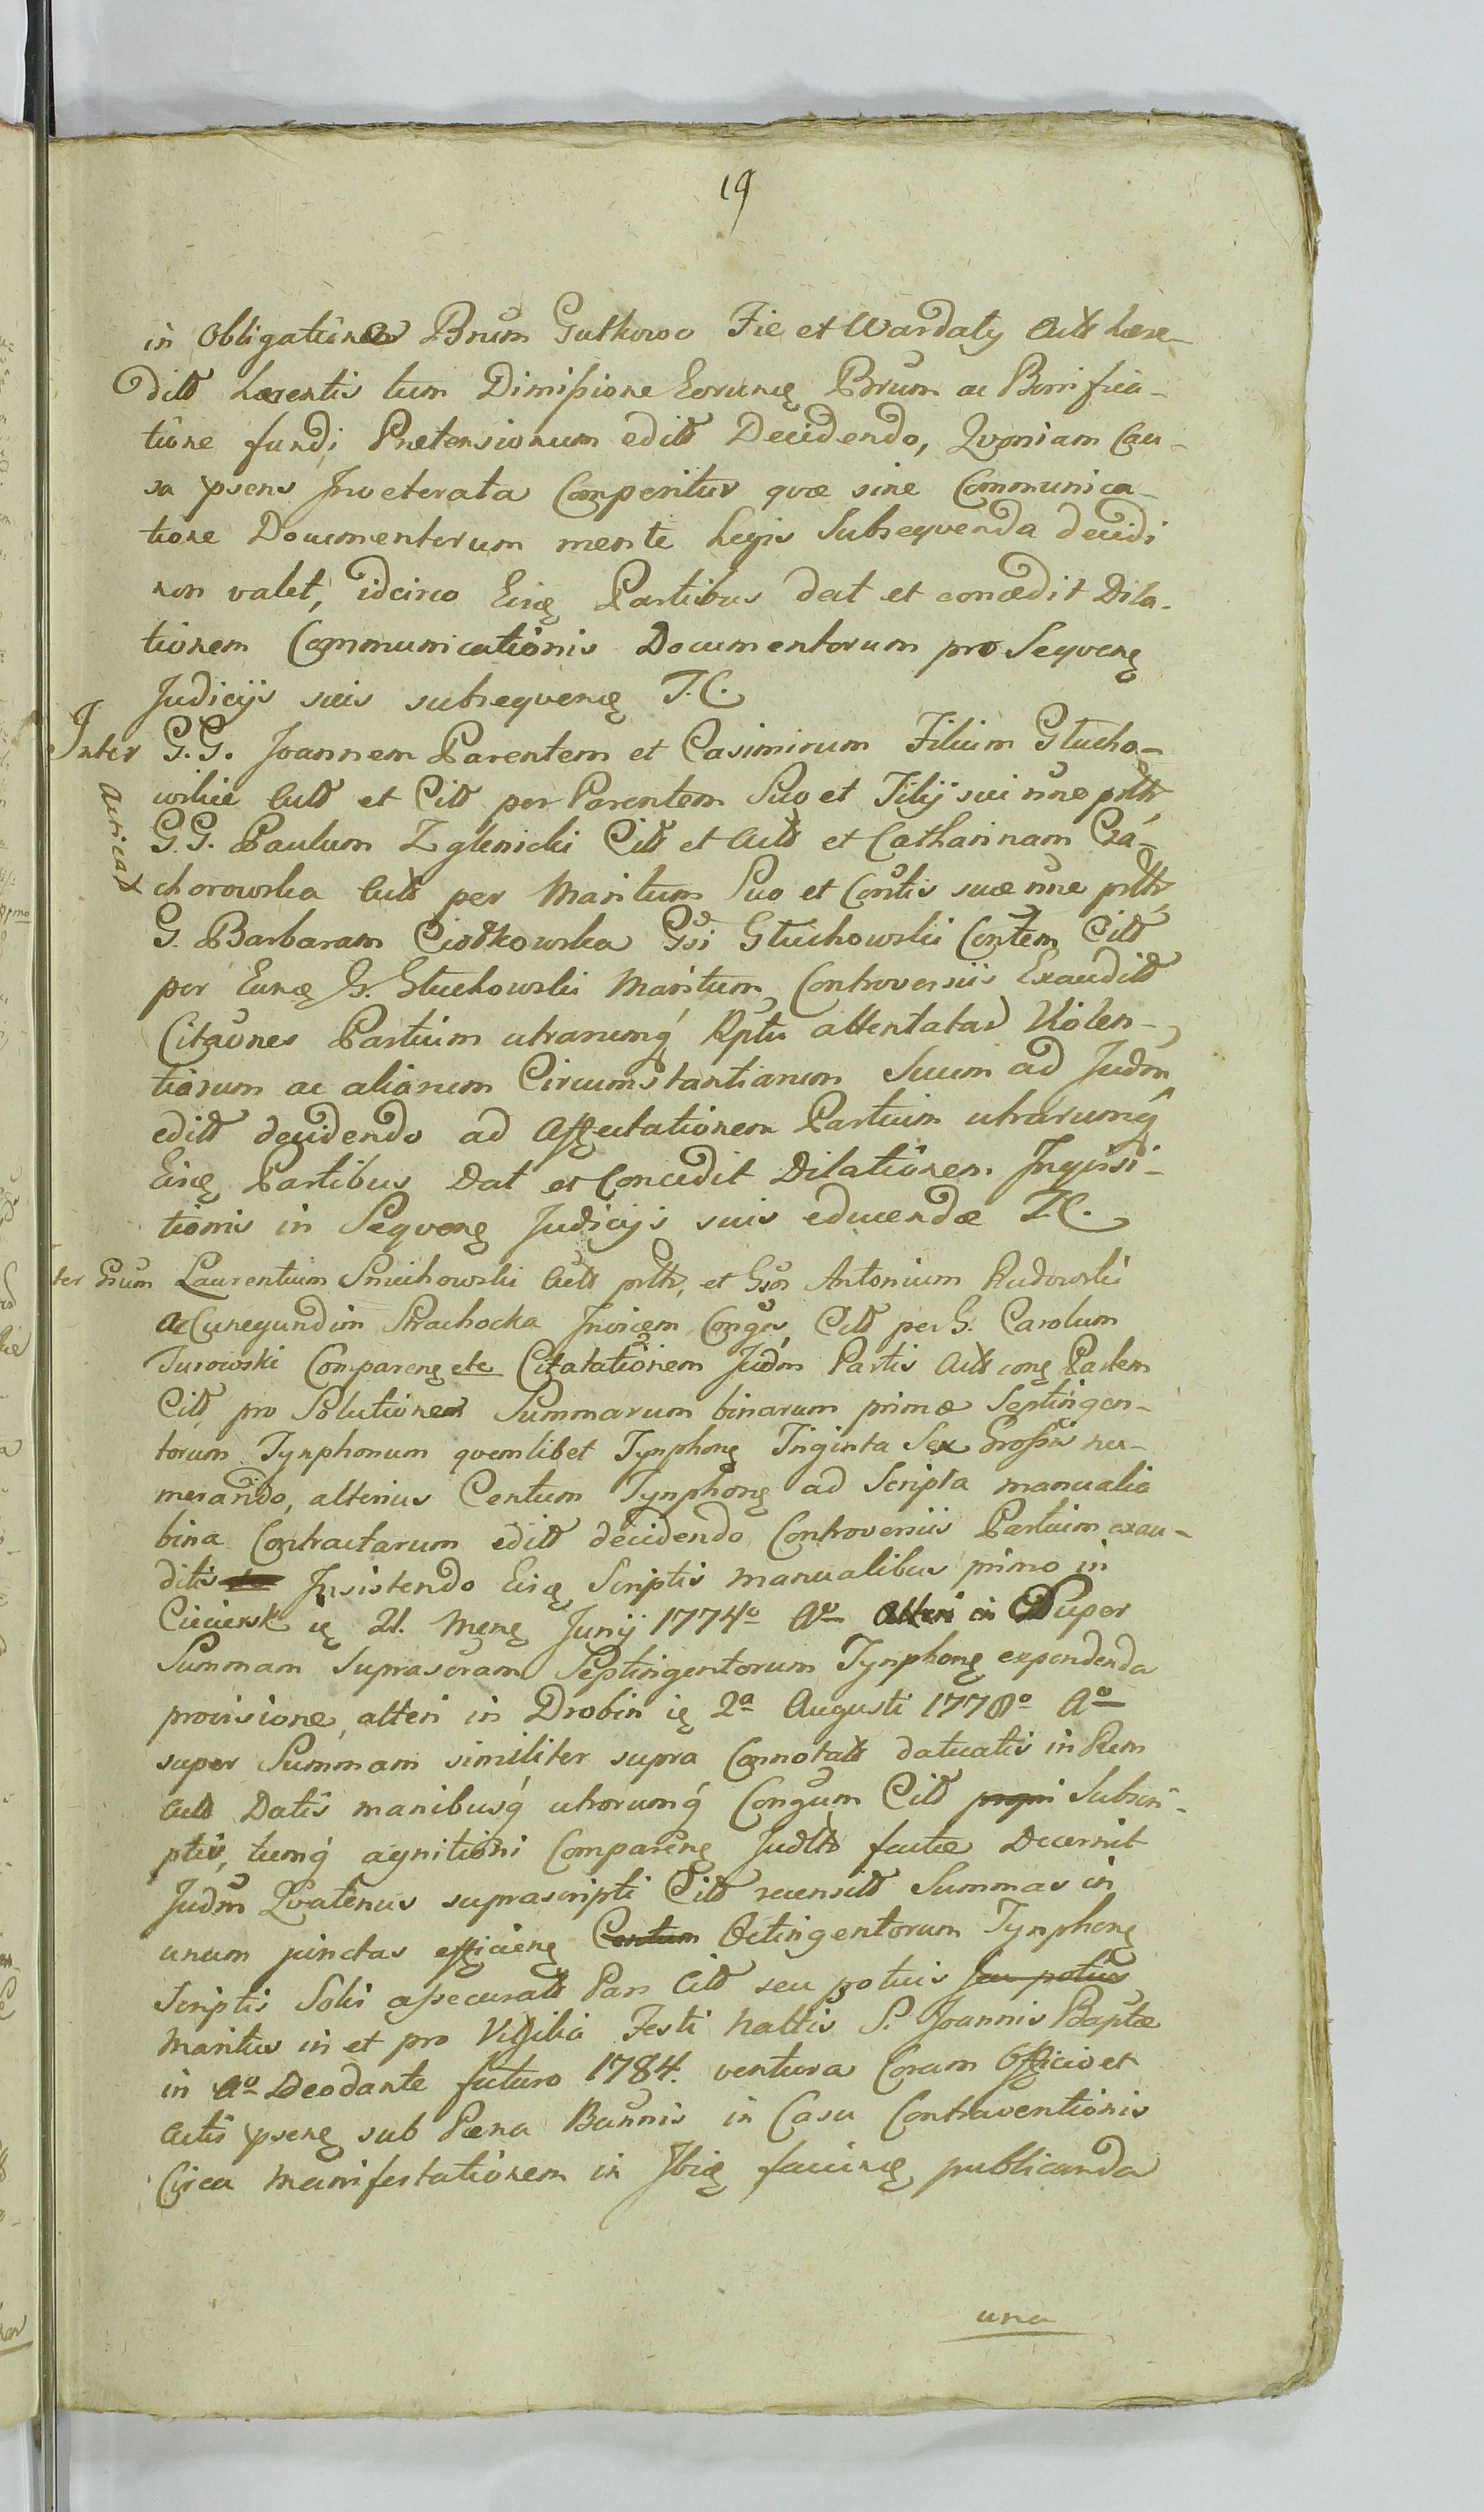 19
in Obligatione Bnum Gutkowo Fie et Wardaty
ditt haerentis tum Dimissione Eorund Bnum ac Bonifica-
tione fundi Praetensionum editt Decidendo, Qvoniam Cau-
sa psens Inveterata Comperitur qvae sine Communica-
tione Documentorum mente Legis Subseqvenda decidi
non valet, idcirco Eisd Partibus dat et concedit Dila-
tionem Communicationis Documentorum pro Seqven
Judicijs suis subseqvend T.C.
Inter G.G. Joannem Parentem et Casimirum Filium Głucho-
wskie Actt et Citt per Parentem Suo et Filij sui nne
G.G. Paulum Zglenicki Citt et Actt et Catharinam
chorowska Actt per Maritum Suo et Contis suae nne
G. Barbaram Ciołkowska Gsi Głuchowski Contem Citt
per Eund G. Głuchowski Maritum, Controversiis Exauditt
Citaones Partium utrarumq Rptu attentatar Violen-
tiarum ac aliarum Circumstantiarum Suum ad Judm
editt decidendo ad Affectationem Partium utrarumq
Eisd Partibus Dat et Concedit Dilationem Inqvisi-
tionis in Seqven Judicijs suis educendae T.C.
ter Gsum Laurentium Smichowski Actt et Gsos Antonium Rudowski
ac Cunegundim Strachocka Invicem Conges Citt per G. Carolum
Turowski Comparen etc Citatationem Judm Partis Actt con Partem
Citt pro Solutione Summarum binarum primae Septingen-
torum Tynphonum qvemlibet Tynphon Triginta Sex Grossis nu-
merando, alterius Centum Tynphon ad Scripta manualia
bina Contractarum editt decidendo Controversiis Partium exau-
ditis Insistendo Eisd Scriptis manualibus primo in
21. Mens Junij 1774o Ao alteri in Super
Summam Suprascriam Septingentorum Tynphon expendenda
provisione, alteri in Drobin 2a Augusti 1778o Ao
super Summam similiter supra Connotatt datuatis in Rem
Actt Datis manibusq utrorumq Congum Citt Subscri-
ptis, tumq agnitioni Comparen Judltr factae Decernit
Judm Qvatenus suprascripti Citt recensitt Summas in
unum junctas efficien Centum Octingentorum Tynphon
Scriptis Solis assecuratt Pars Citt seu potuis seu potius
Maritus in et pro Vigilia Festi Naltis S. Joannis Baptae
in Ao Deodante futuro 1784. ventura Coram Officio et
Actis psen sub Paena Bannis in Casu Contraventionis
Circa Manifestationem in Ibid faciend publicanda
una